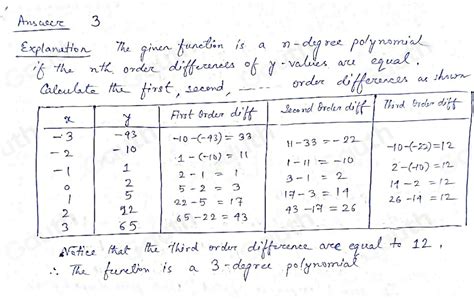 Answer 3
Explanation The given function is a n-degree polynomial
if the nth order differences of y-values are equal.
Calculate the first, second, ------ order differences as shown
x y First Order diff Second Order diff Third Order diff
-3 -43 -10-(-43) = 33 11-33 = -22 -10-(-22)=12
-2 -10 1-(-10) = 11 1-11 = -10 2-(-10) = 12
-1 1 2-1 = 1 3-1 = 2 14-2 = 12
0 2 5-2 = 3 17-3 = 14 26-14 = 12
1 5 22-5 = 17 43-17 = 26
2 22 65-22 = 43
3 65
Notice that the third order difference are equal to 12.
∴ The function is a 3-degree polynomial